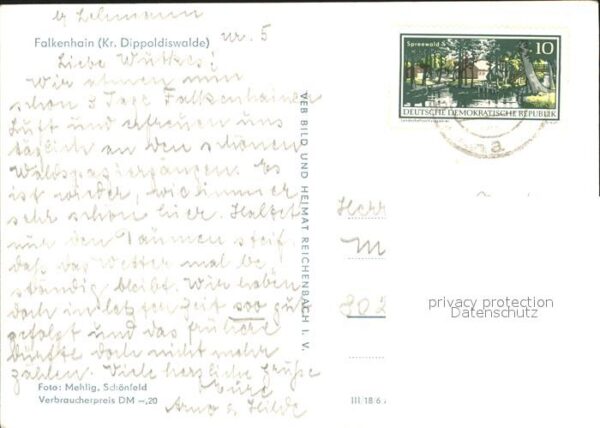 b/ Lehmann
Falkenhain (Kr. Dippoldiswalde)
nr. 5
Liebe Wutkes!
Wir atmen nun
schon 3 Tage Falkenhainer
Luft und erfreuen uns
täglich an den schönen
Waldspaziergängen. Es
ist wieder, wie immer
sehr schön hier. Haltet
nur den Daumen steif,
daß das Wetter mal be
ständig bleibt. Wir haben
doch in letzter Zeit soo gut
gefolgt und das frühere
dürfte doch nicht mehr
zählen. Viele herzliche Grüße
Eure
Arno u. Hilde
Foto: Mehlig, Schönfeld
Verbraucherpreis DM –,20
VEB BILD UND HEIMAT REICHENBACH I. V.
III/18/6
Spreewald
10
DEUTSCHE DEMOKRATISCHE REPUBLIK
a
Herr
M
802
privacy protection
Datenschutz